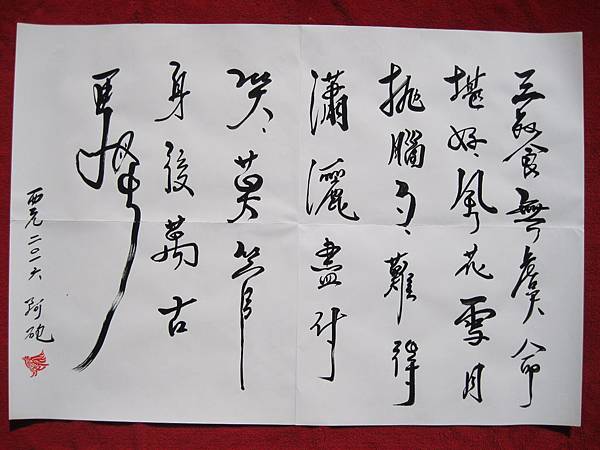 三食無虞命
堪好、風花雪月
挑腦勺、難得
瀟灑盡付
笑、莫管
身後萬古
西元二〇一六 阿砲